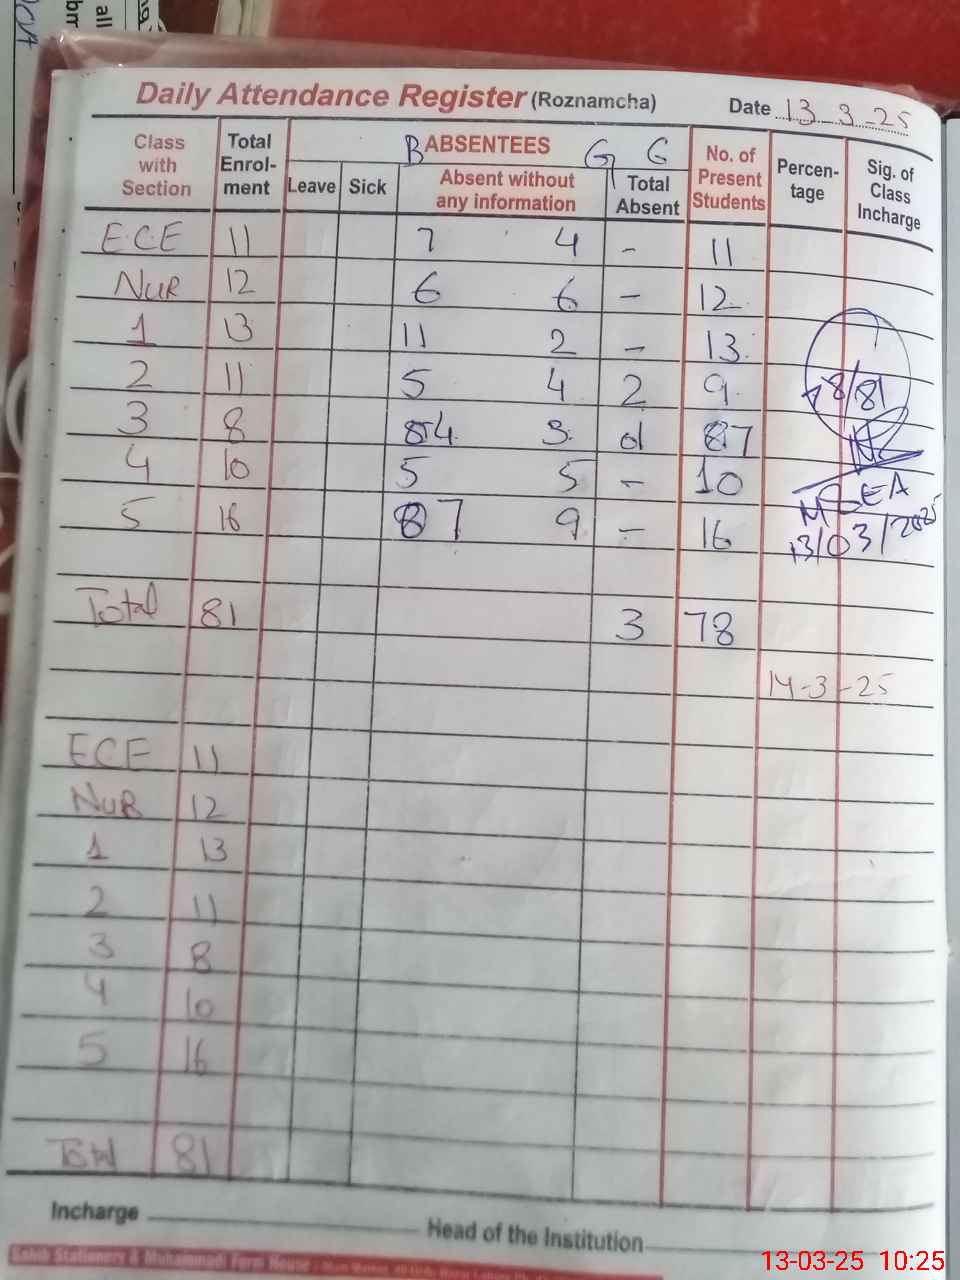 Daily Attendance Register (Roznamcha) Date 13-3-25
Class with Section Total Enrol-ment B ABSENTEES G G No. of Present Students Percen-tage Sig. of Class Incharge
Leave Sick Absent without any information Total Absent
E.C.E 11 7 4 - 11
NUR 12 6 6 - 12
1 13 11 2 - 13
2 11 5 4 2 9
3 8 4 3 7
4 10 5 5 - 10
5 16 7 9 - 16
78/81
MEA
13/03/2025
Total 81 3 78
14-3-25
ECE 11
NUR 12
1 13
2 11
3 8
4 10
5 16
Total 81
Incharge Head of the Institution
13-03-25 10:25